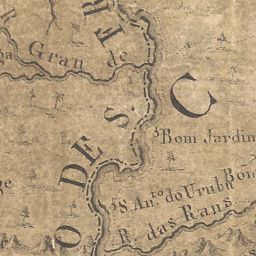 Gran de
FR
C
O DE S.
Bom Jardin
S. An.to do Urubu
R. das Rans